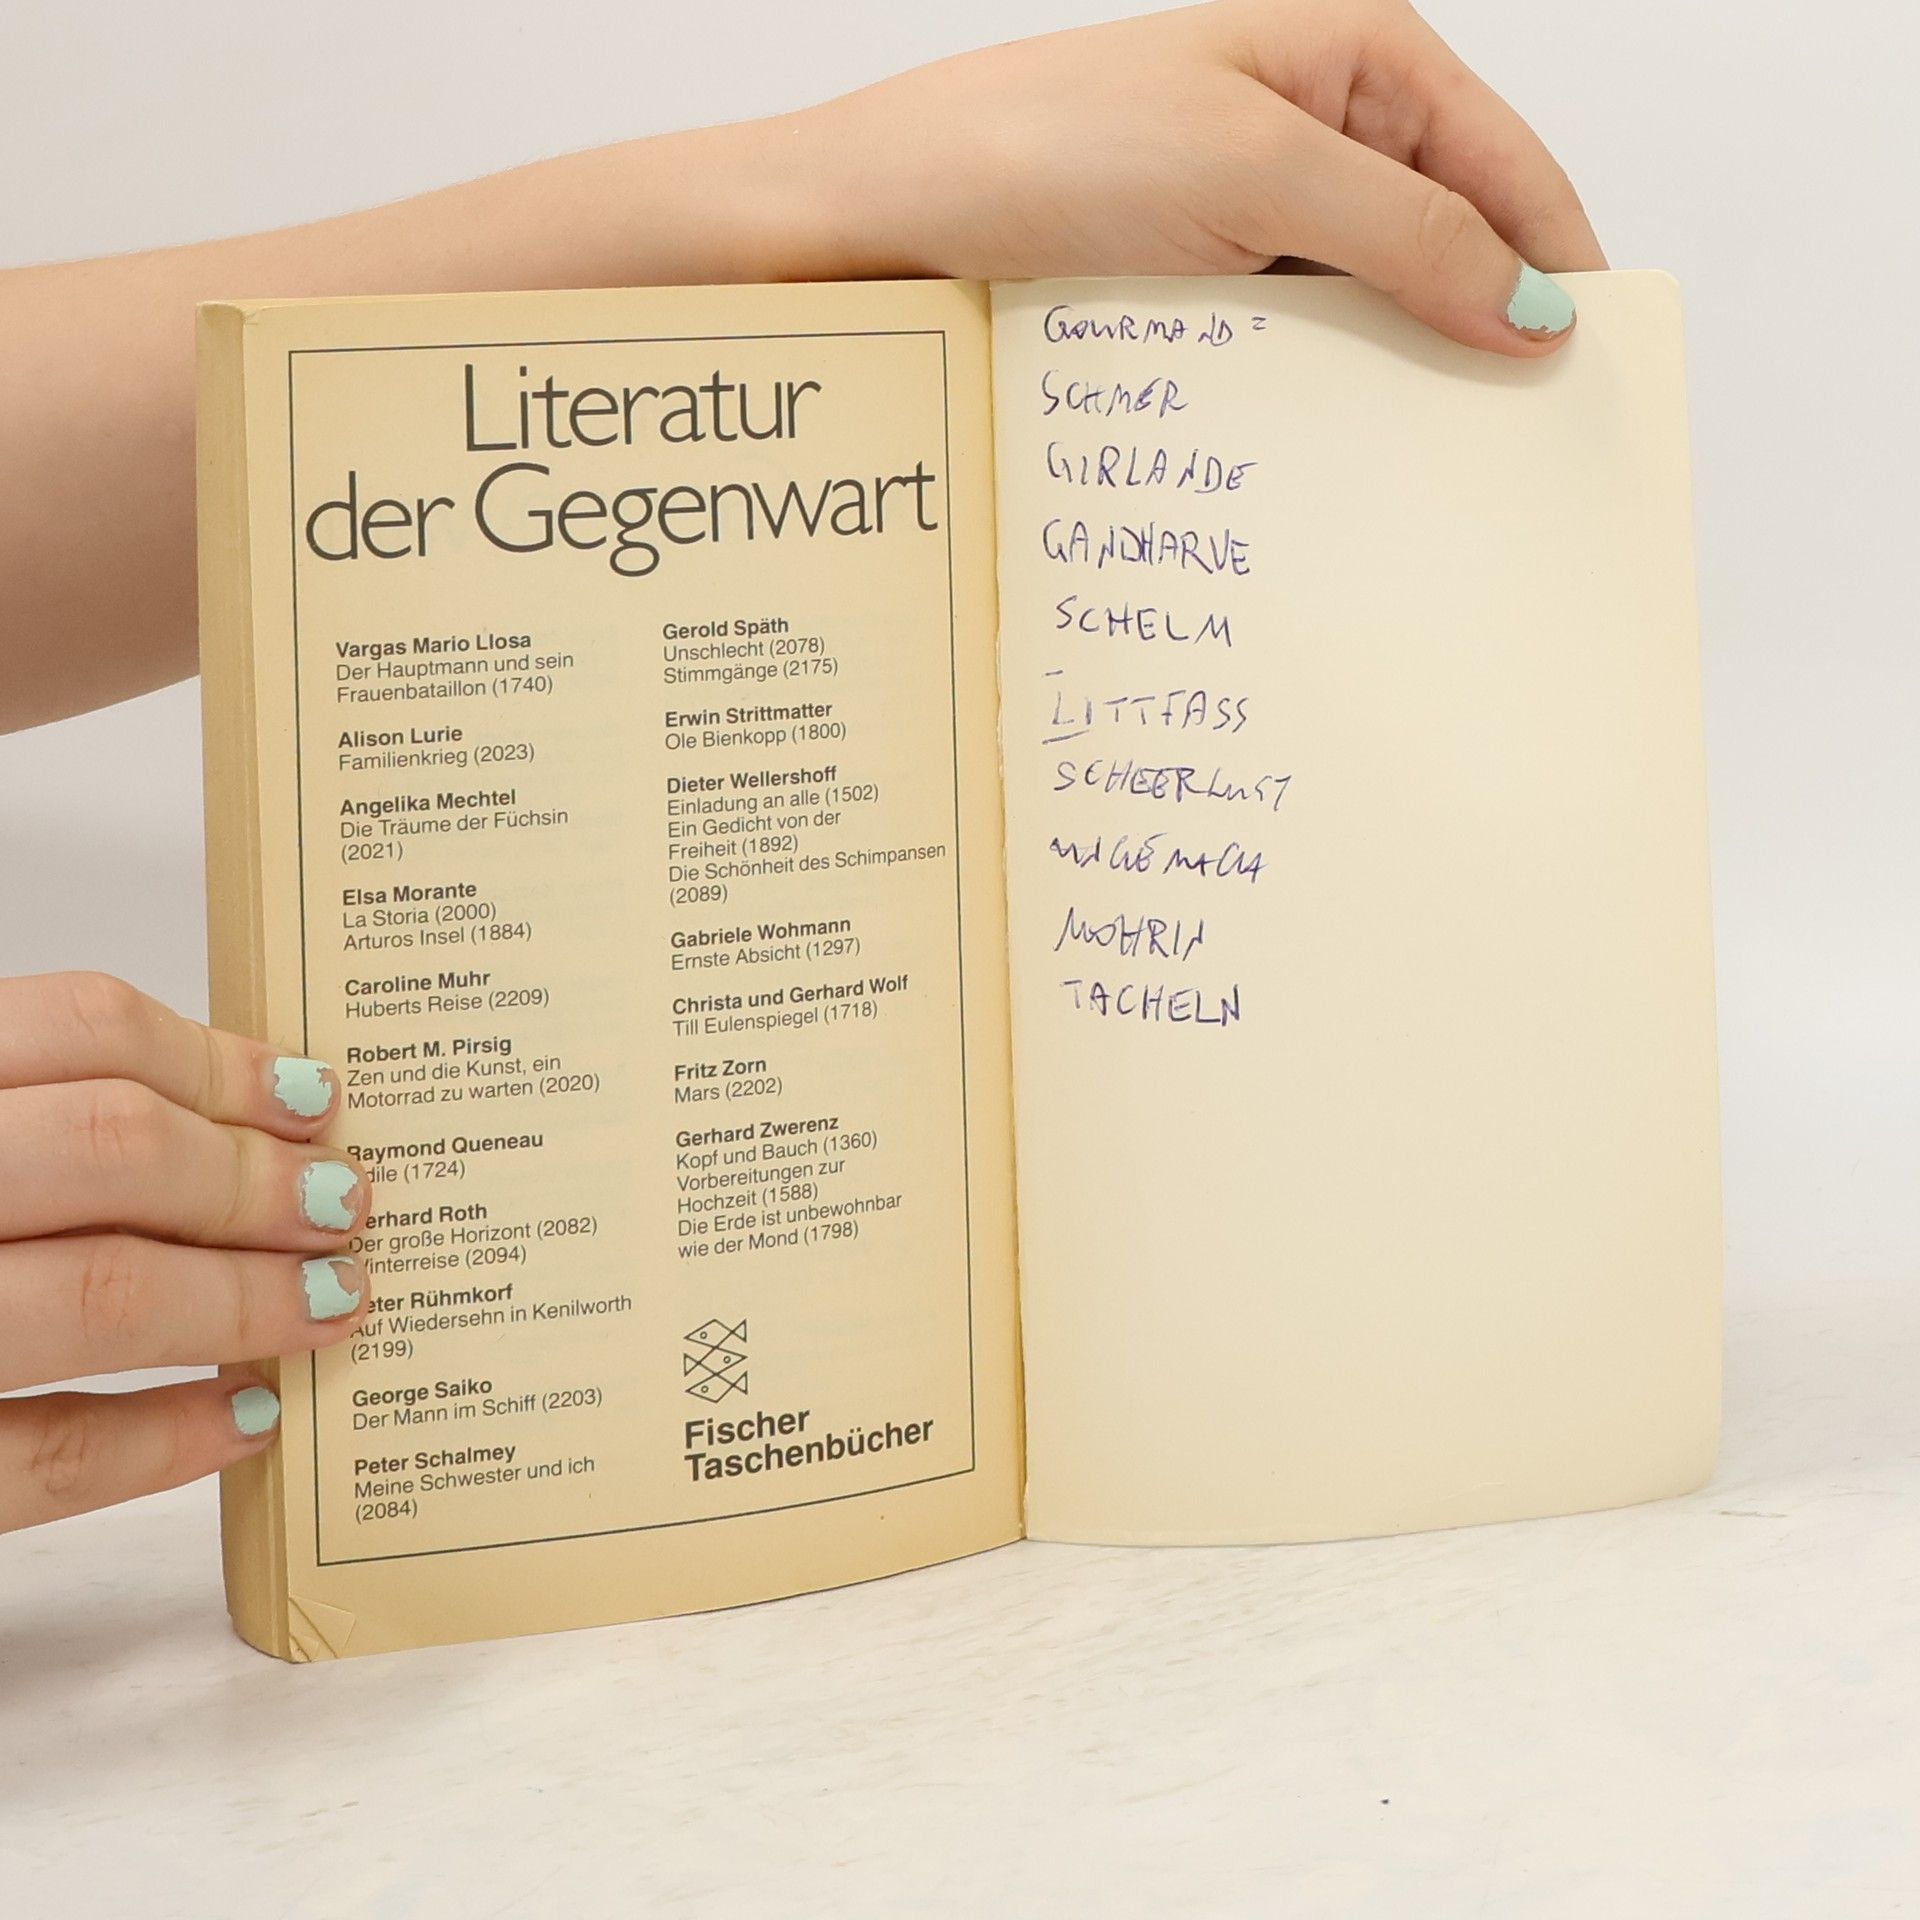 Literatur
der Gegenwart
Vargas Mario Llosa
Der Hauptmann und sein
Frauenbataillon (1740)
Alison Lurie
Familienkrieg (2023)
Angelika Mechtel
Die Träume der Füchsin
(2021)
Elsa Morante
La Storia (2000)
Arturos Insel (1884)
Caroline Muhr
Huberts Reise (2209)
Robert M. Pirsig
Zen und die Kunst, ein
Motorrad zu warten (2020)
Raymond Queneau
dile (1724)
erhard Roth
Der große Horizont (2082)
Winterreise (2094)
eter Rühmkorf
Auf Wiedersehn in Kenilworth
(2199)
George Saiko
Der Mann im Schiff (2203)
Peter Schalmey
Meine Schwester und ich
(2084)
Gerold Späth
Unschlecht (2078)
Stimmgänge (2175)
Erwin Strittmatter
Ole Bienkopp (1800)
Dieter Wellershoff
Einladung an alle (1502)
Ein Gedicht von der
Freiheit (1892)
Die Schönheit des Schimpansen
(2089)
Gabriele Wohmann
Ernste Absicht (1297)
Christa und Gerhard Wolf
Till Eulenspiegel (1718)
Fritz Zorn
Mars (2202)
Gerhard Zwerenz
Kopf und Bauch (1360)
Vorbereitungen zur
Hochzeit (1588)
Die Erde ist unbewohnbar
wie der Mond (1798)
Fischer
Taschenbücher
GOURMAND =
SCHMER
GIRLANDE
GANDHARVE
SCHELM
LITTFASS
SCHEERLUST
MOHRIN
TACHELN